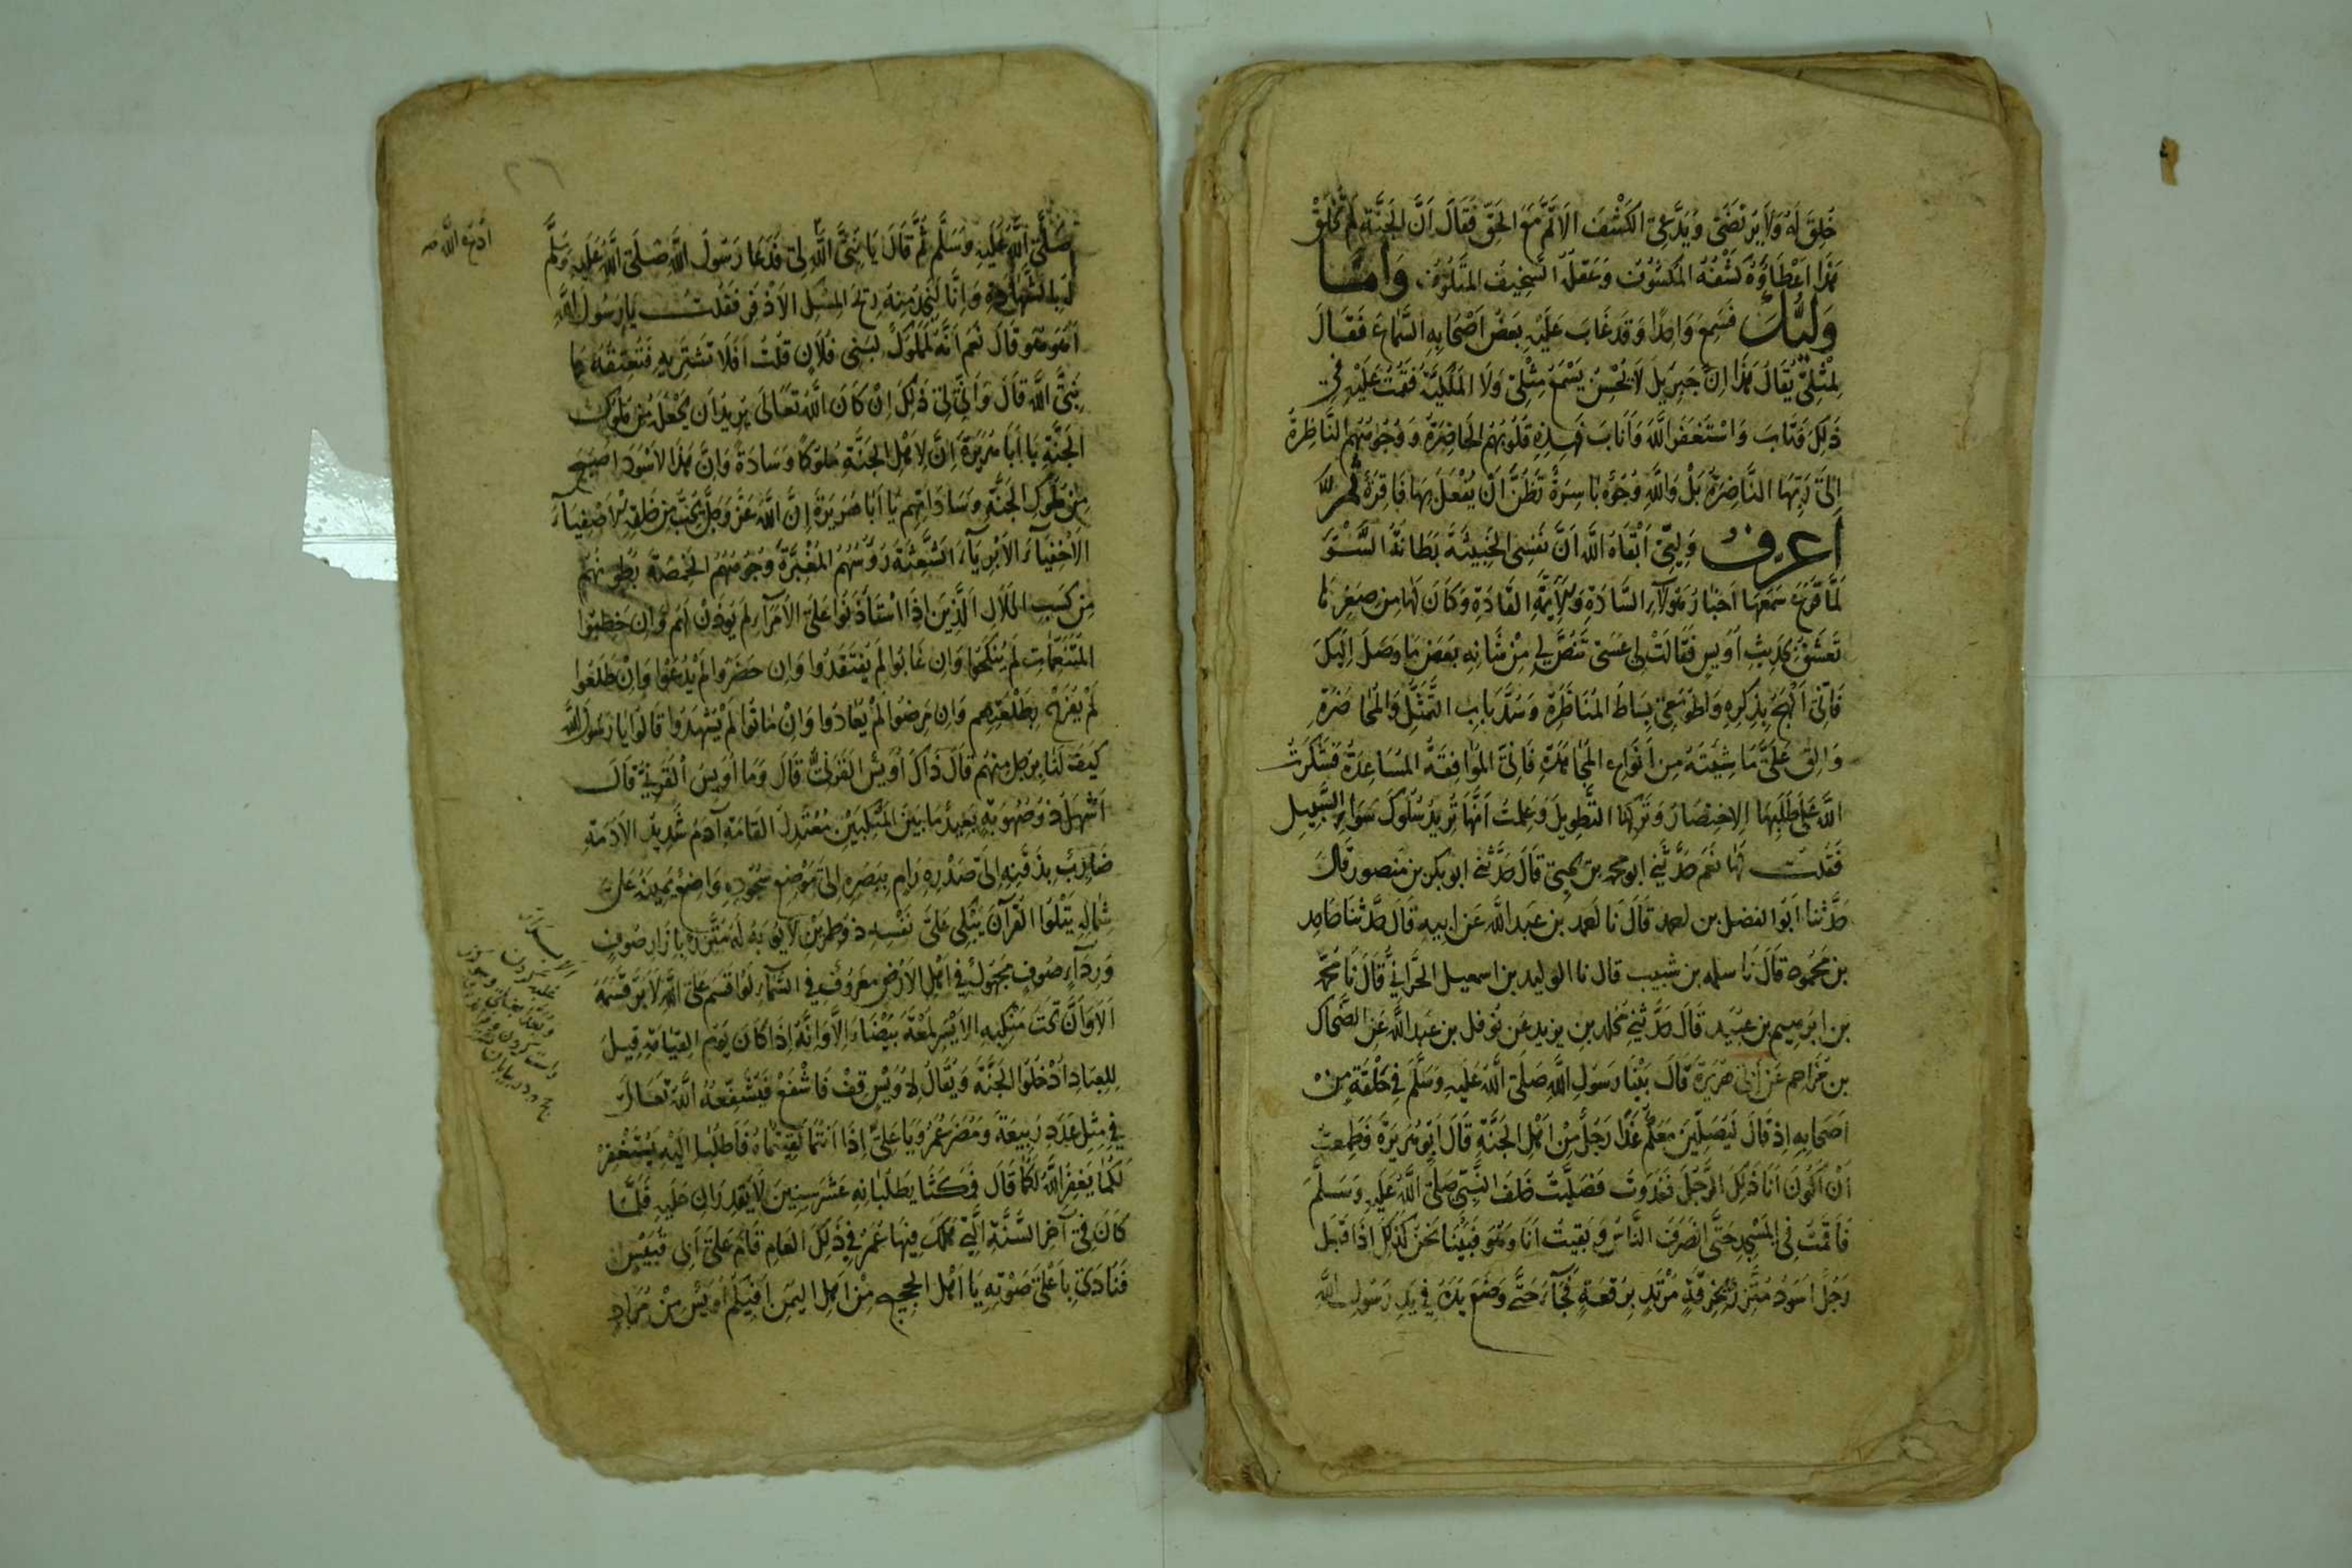 خُلِقَ لَهُ وَلَا يَرْتَضِي وَيَدَّعِي الكَشْفَ الاَتَمَّ مَعَ الحَقِّ فَقَالَ اَنَّ الجَنَّةِ لَمْ تُخْلَقْ
هَذَا اَعْطَاوُهُ كَشْفُهُ المَكْسُوْفُ وَعَقْلُهُ السَّخِيفُ المَتْلُوفُ وَاَمَّا
وَلِيُّكَ فَسَمِعَ وَاحِدًا وَقَد غَابَ عَلَيْهِ بَعْضُ اَصْحَابِهِ السَّمَاعَ فَقَالَ
لِمِثْلِي يُقَالُ هَذَا اِنَّ جَبرِيلَ لَا يُحْسِنُ يَسْمَعُ مِثْلِي وَلَا المَلَئِكَةُ فَقُمْتُ عَلَيْهِ فِي
ذَلِكَ فَتَابَ وَاسْتَغْفَرَ اللَّهَ وَاَنَابَ فَهَذِهِ قُلُوبُهُمُ الحَاضِرَةُ وَوُجُوهُهُمُ النَّاظِرَةُ
اِلَى رَبِّهَا النَّاضِرَةُ بَلْ وَاللَّهِ وُجُوْهٌ بَاسِرَةٌ تَظُنُّ اَنْ يُفْعَلَ بِهَا فَاقِرَةٌ ثُمَّ
اَعرِفُ وَلِيِّي اَبْقَاهُ اللَّه اَنَّ نَفْسِي الخَبِيثَةَ بَطَانَةُ السُّوْءِ
لَمَّا قَرَعَ سَمْعَهَا اَخبَارُ هَؤُلَآءِ السَّادَةِ وَالاَئِمَّةِ القَادَةِ وَكَانَ لَهَا مِن صِغَرِهَا
تَعَشُّقٌ بِحَدِيثِ اُوَيسٍ فَقَالَتْ لِي عَسَى تَقُصُّ لِي مِنْ شَانِهِ بَعْضَ مَا وَصَلَ اِلَيْكَ
فَاِنِّي اَلْهَجُ بِذِكرِهِ وَاطْوِ مَعِي بِسَاطَ المُنَاظَرَةِ وَسُدَّ بَابَ التَّمَثُّلِ وَالمُحَاضَرَةِ
وَالقِ عَلَيَّ مَا شِئْتَهُ مِن اَنْوَاعِ المُجَاهَدَةِ فَاِنِّي المُوَافِقَةُ المُسَاعِدَةُ فَشَكَرْتُ
اللَّهَ عَلَى طَلَبِهَا الِاخْتِصَارَ وَتَركِهَا التَّطْوِيلَ وَعَلِمْتُ اَنَّهَا تُرِيدُ سُلُوكَ سَوَاءِ السَّبِيلِ
فَقُلْتُ لَهَا نَعَم حَدَّثَنِي ابو محمد بن يحيى قَالَ حَدَّثَنِي ابو بكر بن منصور قَالَ
حَدَّثنا اَبُو الفضل بن احمد قَالَ نَا احمد بن عَبد اللَّه عَن ابيه قَالَ حَدَّثَنَا حَامد
بن مَحمُود قَالَ نَا سلمه بن شبيب قال نا الوليد بن اسمعيل الحَرَّانِي قَالَ نَا مُحَمَّد
بن ابرهيم بن عبَيد قَالَ حَدَّثَنِي مُخلد بن يزيد عَن نُوفل بن عبد اللَّه عَن الضَّحاك
بن مُزَاحِم عَن اَبِي هُرَيرَةَ قَالَ بَيْنَا رَسُولُ اللَّهِ صَلَّى اللَّهُ عَلَيهِ وَسَلَّمَ فِي حَلْقَةٍ مِنْ
اَصحَابِهِ اِذ قَالَ لَيُصَلِّيَنَّ مَعَكُمْ غَدًا رَجُلٌ مِنْ اَهْلِ الجَنَّةِ قَالَ اَبُو هُرَيْرَةَ فَطَمِعْتُ
اَنْ اَكُوْنَ اَنَا ذَلِكَ الرَّجُلَ فَغَدَوْتُ فَصَلَّيْتُ خَلفَ النَّبِيِّ صَلَّى اللَّهُ عَلَيْهِ وَسَلَّمَ
فَاَقَمْتُ فِي المَسْجِدِ حَتَّى انصَرَفَ النَّاسُ وَبَقِيتُ اَنَا وَهُوَ فَبَيْنَا نَحْنُ كَذَلِكَ اِذ اَقْبَلَ
رَجُلٌ اَسوَدُ مُتَّزِرٌ بِخِرْقَةٍ مُرْتَدٍ بِرُقْعَةٍ فَجَآءَ حَتَّى وَضَعَ يَدَهُ فِي يَدِ رَسُولِ اللَّهِ
صَلَّى اللَّهُ عَلَيهِ وَسَلَّمَ ثُمَّ قَالَ يَا نَبِيَّ اللَّهِ لِي فَدَعَا رَسُولُ اللَّهِ صَلَّى اللَّهُ عَلَيهِ وَسَلَّمَ
ادْعُ اللَّه
لَهُ بِالشَّهَادَةِ وَاِنَّا لَنَجِدُ مِنْهُ رِيحَ المِسْكِ الاَذْفَرِ فَقُلْتُ يَا رَسُولَ اللَّهِ
اَهُوَ هُوَ قَالَ نَعَم اَنَّهُ لَمَمْلُوكٌ لِبَنِي فُلَانٍ قُلْتُ اَفَلَا تَشتَرِيهِ فَتُعْتِقُهُ يَا
نَبِيَّ اللَّهِ قَالَ وَاَنَّى لِي ذَلِكَ اِنْ كَانَ اللَّهُ تَعَالَى يُرِيدُ اَن يَجْعَلَهُ مِن مُلُوكِ
الجَنَّةِ يَا اَبَا هُرَيْرَةَ اِنَّ لِاَهْلِ الجَنَّةِ مُلُوكًا وَسَادَةً وَاِنَّ هَذَا الاَسْوَدَ اَصبَحَ
مِن مُلُوكِ الجَنَّةِ وَسَادَاتِهِم يَا اَبَا هُرَيرَةَ اِنَّ اللَّهَ عَزَّ وَجَلَّ يُحِبُّ مِن خَلقِهِ الاَصْفِيَآءَ
الاَخْفِيَآءَ الاَبْرِيَآءَ الشَّعِثَةَ رُؤسُهُم المُغْبَرَّةَ وُجُوهُهُمُ الخَمِصَةَ بُطُونُهُم
مِن كَسْبِ الحَلَالِ الَّذِينَ اِذَا اسْتَأذَنُوا عَلَى الاُمَرَآءِ لَم يُوذَنْ لَهُم وَاِن خَطَبُوا
المُتَنَعِّمَاتِ لَم يُنكَحُوا وَاِن غَابُوا لَم يُفْتَقَدُوا وَاِن حَضَرُوا لَمْ يُدْعَوْا وَاِنْ طَلَعُوا
لَمْ يُفْرَحْ بِطَلْعَتِهِم وَاِن مَرِضُوا لَمْ يُعَادُوا وَاِنْ مَاتُوا لَمْ يُشْهَدُوا قَالُوا يَا رَسُولَ اللَّهِ
كَيفَ لَنَا بِرَجُلٍ مِنهُم قَالَ ذَاكَ اُوَيْسٌ القَرَنِيُّ قَالَ وَمَا اُوَيسٌ القَرَنِيُّ قَالَ
اَشْهَلُ ذُو صُهُوبَةٍ بَعِيدُ مَا بَيْنَ المَنْكِبَيْنِ مُعْتَدِلُ القَامَةِ آدَمُ شَدِيدُ الاُدْمَةِ
ضَارِبٌ بِذَقَنِهِ اِلَى صَدْرِهِ رَامٍ بِبَصَرِهِ اِلَى مَوْضِعِ سُجُودِهِ وَاضِعٌ يَمِينَهُ عَلَى
شِمَالِهِ يَتْلُوا القُرآنَ يَبْكِي عَلَى نَفْسِهِ ذُو طِمْرَيْنِ لَا يُوبَهُ لَهُ مُتَّزِرٌ بِاِزَارِ صُوفٍ
وَرِدَآءِ صُوفٍ مَجْهُولٌ فِي اَهْلِ الاَرْضِ مَعْرُوفٌ فِي السَّمَآءِ لَوْ اَقسَمَ عَلَى اللَّهِ لَاَبَرَّ قَسَمَهُ
اَلَا وَاَنَّ تَحْتَ مَنْكِبِهِ الاَيْسَرِ لُمْعَةً بَيْضَاءَ اَلَا وَاِنَّهُ اِذَا كَانَ يَوْمُ القِيَامَةِ قِيلَ
لِلعِبَادِ اُدْخُلُوا الجَنَّةَ وَيُقَالُ لِاُوَيْسٍ قِفْ فَاشْفَعْ فَيُشَفِّعُهُ اللَّهُ تَعَالَى
فِي مِثْلِ عَدَدِ رَبِيعَةَ وَمُضَرَ يَا عُمَرُ وَيَا عَلِيُّ اِذَا اَنْتُمَا لَقِيْتُمَاهُ فَاَطْلُبَا اِلَيْهِ يَسْتَغْفِرْ
لَكُمَا يَغْفِرُ اللَّهُ لَكُمَا قَالَ فَمَكَثَا يَطلُبَانِهِ عَشْرَ سِنِينَ لَا يَقدِرَانِ عَلَيهِ فَلَمَّا
كَانَ فِي آخِرِ السَّنَةِ الَّتِي هَلَكَ فِيهَا عُمَرُ فِي ذَلِكَ العَامِ قَامَ عَلَى اَبِي قُبَيْسٍ
فَنَادَى بِاَعْلَى صَوْتِهِ يَا اَهْلَ الحَجِيجِ مِنْ اَهلِ اليَمَنِ اَفِيكُمْ اُوَيْسٌ مِنْ مُرَادٍ